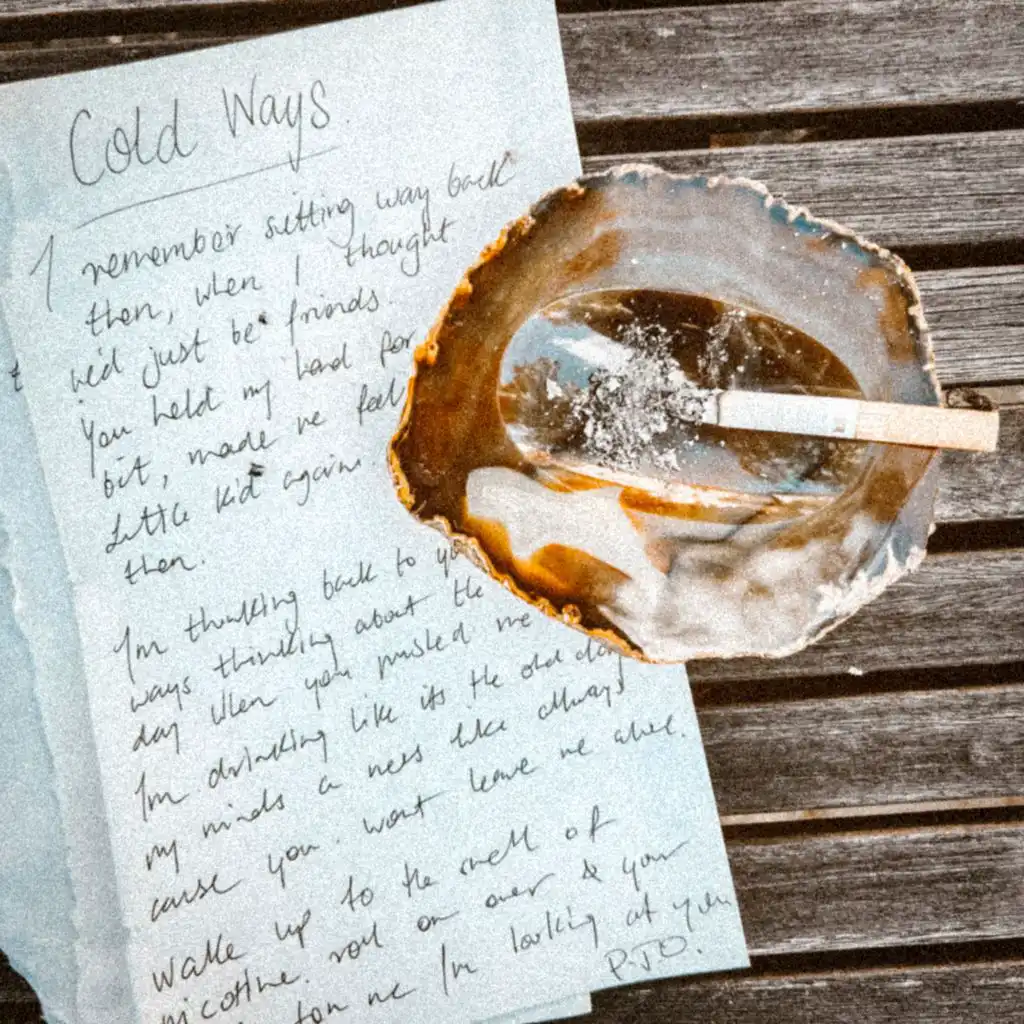 Cold Ways
I remember sitting way back
then, when I thought
we'd just be friends.
You held my hand for
bit, made me feel
Little kid again
then.
I'm thinking back to
ways thinking about the
day when you pushed me
I'm drinking like its the old day
my minds a mess like always
cause you. wont leave me alone.
Wake up to the smell of
nicotine. roll on over & your
me I'm looking at you
P.T.O.